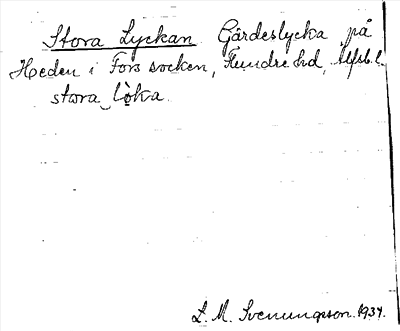 Stora Lyckan Gärdeslycka på
Heden i Fors socken, Flundre hd, Älfsb. l.
stora löka.
L. M. Svenungsson. 1934.